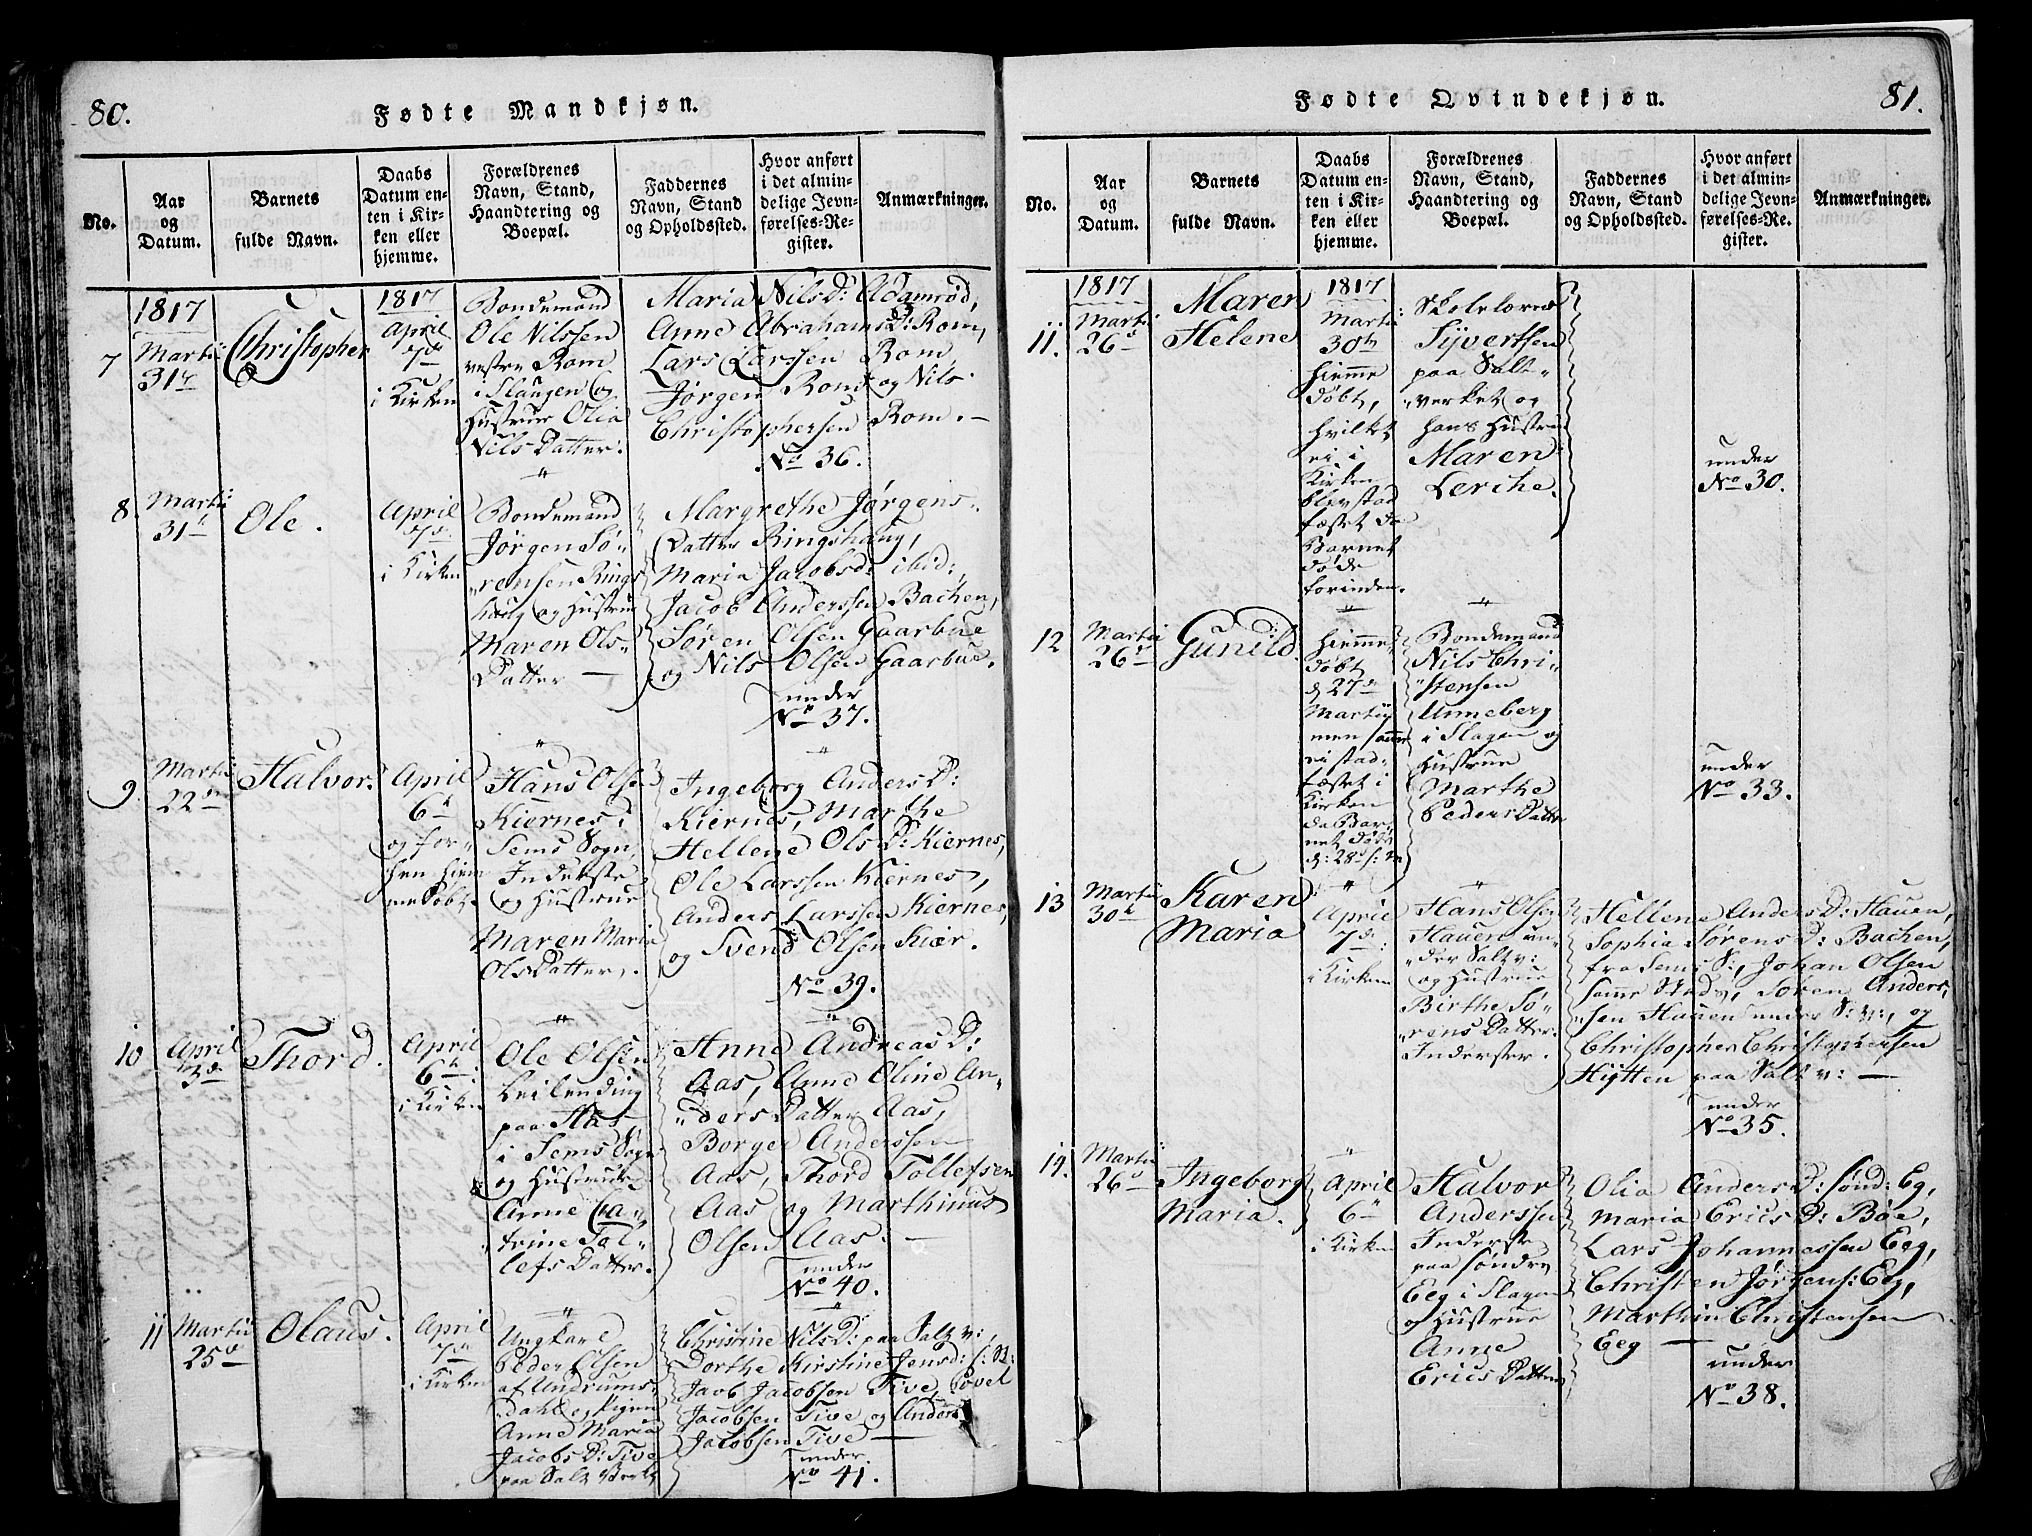 80.
Fødte Mandkjøn.
No.
Aar
og
Datum.
Barnets
fulde Navn.
Daabs
Datum en-
ten i Kir-
ken eller
hjemme.
Forældrenes
Navn, Stand,
Haandtering og
Boepæl.
Faddernes
Navn, Stand
og Opholdssted.
Hvor anført
i det almin-
delige Jevn-
førelses-Re-
gister.
Anmærkninger.
7
1817
Martii
31te
Christopher
1817
April
7de
i Kirken
Bondemand
Ole Nilssen
vestre Rom
i Slaugen og
Hustrue Olia
Nils Datter.
Maria Nils D: Adamrød,
Anne Abrahams D: Rom,
Lars Larssen Rom,
Jørgen Rom og Nils
Christophersen Rom.
No 36.
8.
Martii
31t
Ole.
April
7de
i Kirken
Bondemand
Jørgen Sø-
rensen Rings
houg og Hustrue
Maren Ols
Datter
Margrethe Jørgens
Datter Ringshaug,
Maria Jacobsd: ibid:,
Jacob Anderssen Bachen,
Søren Olsen Gaarbue
og Nils Olsen Gaarbue.
under
No 37.
9.
Martii
22de
Halvor.
April
6te
og for-
hen hiem
me Døbt
Hans Olsen
Kiernes i
Sems Sogn,
Inderste
og Hustrue
Maren Maria
Ols Datter.
Ingeborg Anders D:
Kiernes, Marthe
Hellene Ols D: Kiernes,
Ole Larssen Kiernes,
Anders Larssen Kiernes,
og Svend Olsen Kiær.
No 39.
10
April
3de
Thord.
April
6te
i Kirken
Ole Olsen
Leilending
paa Aas
i Sems Sogn
og Hustrue
Anne Ca-
trine Tol-
lefs Datter.
Anne Andreas D:
Aas, Anne Oline An-
ders Datter Aas,
Borger Anderssen
Aas, Thord Tollefsen
Aas og Marthinus
Olsen Aas.
under
No 40.
11
Martii
25de
Olaus.
April
7de
i Kirken
Ungkarl
Peder Olsen
af Undrums
dahl og Pigen
Anne Maria
Jacobs D: Tive
paa Salt Verk
Christine Nils D: paa Salt v:,
Dorthe Kirstine Jensd: s: St:
Jacob Jacobsen Tive, Povel
Jacobsen Tive og Anders
Jacobsen Tive
under
No 41.
81.
Fødte Qvindekjøn.
No.
Aar
og
Datum.
Barnets
fulde Navn.
Daabs
Datum en-
ten i Kir-
ken eller
hjemme.
Forældrenes
Navn, Stand,
Haandtering og
Boepæl.
Faddernes
Navn, Stand
og Opholdssted.
Hvor anført
i det almin-
delige Jevn-
førelses-Re-
gister.
Anmærkninger.
11.
1817
Martii
26de
Maren
Helene
1817
Martii
30te
hiemme
døbt,
hvilket
ei i
Kirken
blev stad
fæstet da
Barnet
døde
forinden.
Skolelærer
Syvertsen
paa Salt-
verket og
hans Hustrue
Maren
Lerche.
under
No 30.
12
Martii
26de
Gunild.
hiemme
døbt
d 27de
Martii
men
ei stad-
fæstet i
Kirken
da Bar-
net døde
d: 28de s: M
Bondemand
Nils Chri-
stensen
Unneberg
i Slagen og
Hustrue
Marthe
Peders Datter
under
No 33.
13
Martii
30te
Karen
Maria
April
7de
i Kirken
Hans Olsen
Hauen un-
der Salt v:
og Hustrue
Birthe Sø-
rens Datter.
Inderster.
Hellene Anders D: Hauen,
Sophia Sørens D: Bachen,
fra Sems S:, Johan Olsen
samme Sted, Søren Anders-
sen Hauen under S: v:, og
Christopher Christophersen
Hytten paa Salt v:
under
No 35.
14.
Martii
26de
Ingeborg
Maria.
April
6te
i Kirken
Halvor
Anderssen
Inderste
paa søndre
Eeg i Slagen
og Hustrue
Anne
Erics Datter
Olia Anders D: Sønd: Eg,
Maria Erics D: Bøe,
Lars Johannessen Eeg,
Christen Jørgens: Eeg,
Marthin Christensen
Eeg
under
No 38.